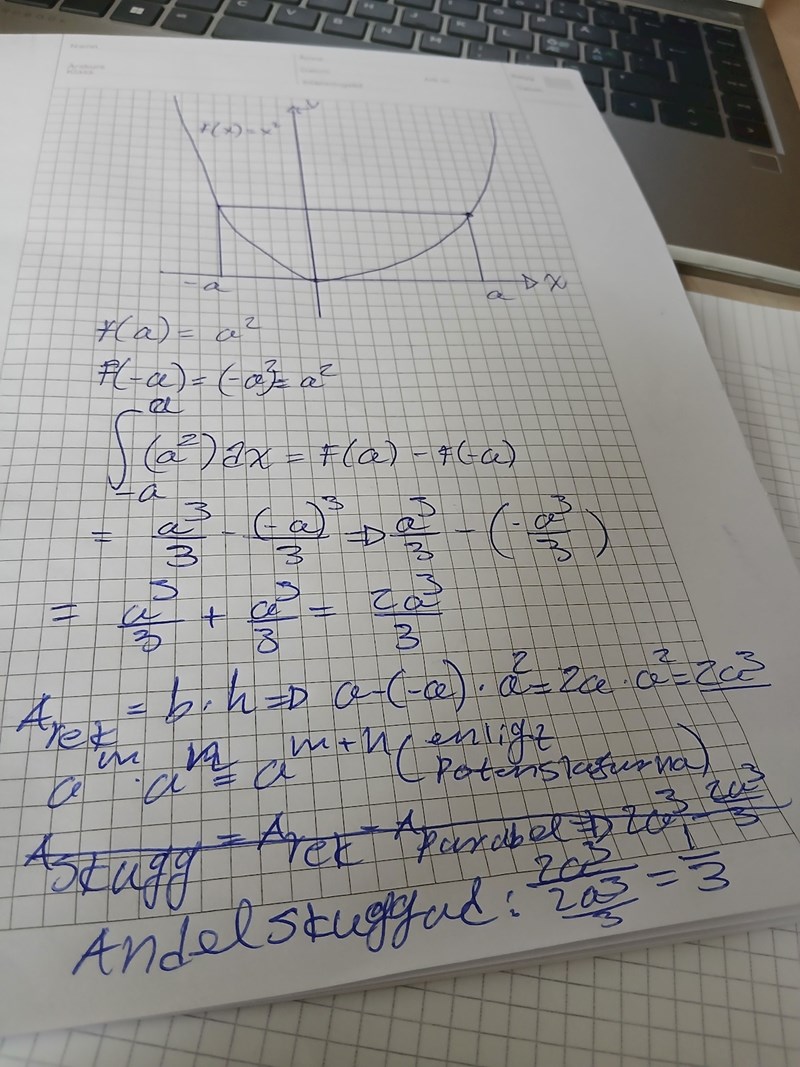 y
f(x) = x²
-a a x
f(a) = a²
f(-a) = (-a)² = a²
∫₋ₐᵃ (a²) dx = F(a) - F(-a)
= a³/3 - (-a)³/3 ⇒ a³/3 - (-a³/3)
= a³/3 + a³/3 = 2a³/3
A_rek = b·h ⇒ a-(-a)·a² = 2a·a² = 2a³
aᵐ·aⁿ = aᵐ⁺ⁿ (enligt
potenslagarna)
A_skugg = A_rek - A_parabel ⇒ 2a³ - 2a³/3
Andel skuggad: 2a³/(2a³/3) = 1/3